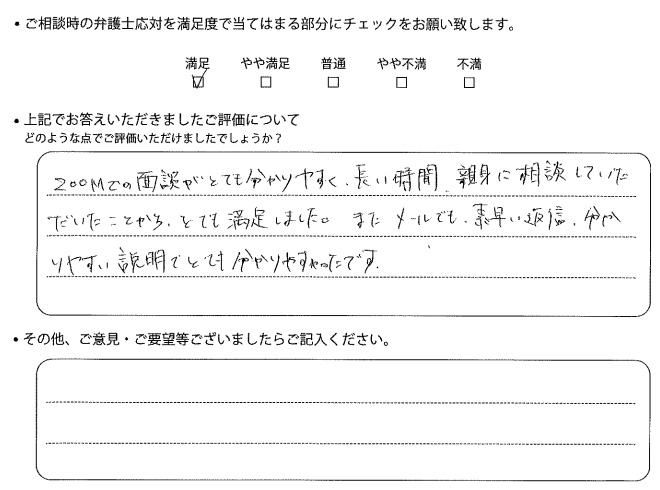 • ご相談時の弁護士応対を満足度で当てはまる部分にチェックをお願い致します。
満足 やや満足 普通 やや不満 不満
☑ ☐ ☐ ☐ ☐
• 上記でお答えいただきましたご評価について
どのような点でご評価いただけましたでしょうか？
ZOOMでの面談がとても分かりやすく、長い時間、親身に相談していた
だいたことから、とても満足しました。またメールでも、素早い返信、分か
りやすい説明でとても分かりやすかったです。
• その他、ご意見・ご要望等ございましたらご記入ください。